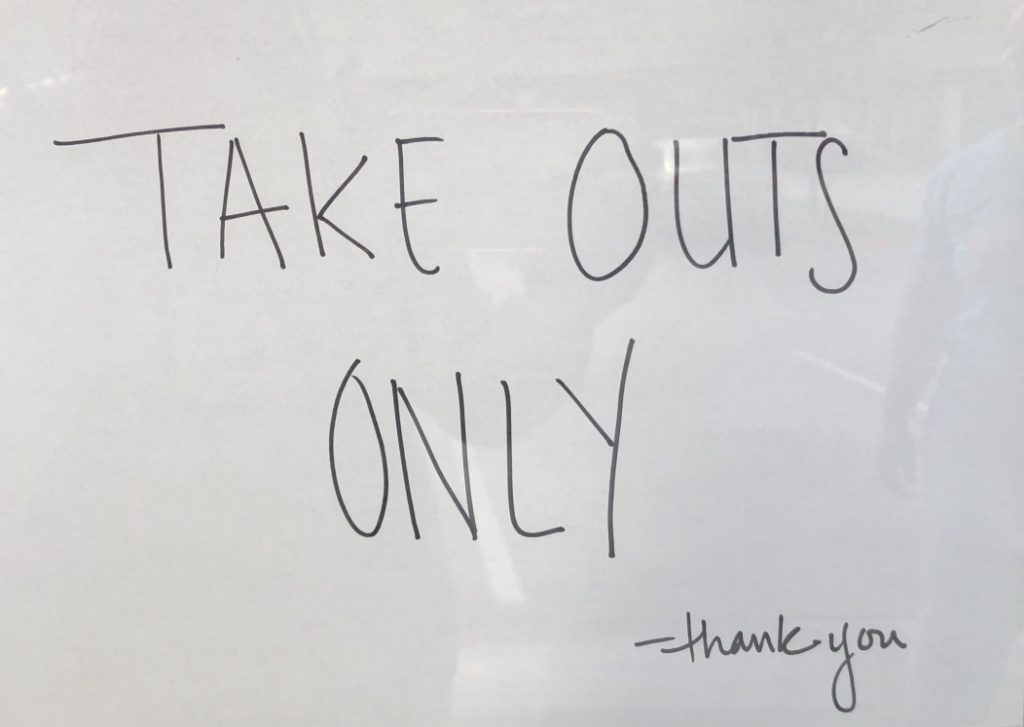 TAKE OUTS
ONLY
-thank you